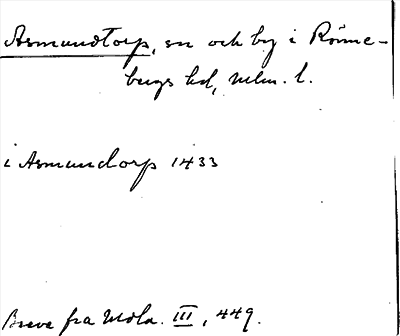 Asmundtorp, sn och by i Rönne-
bergs hd, Mlm. l.
i Asmundorp 1433
Breve fra Mdla. III, 449.